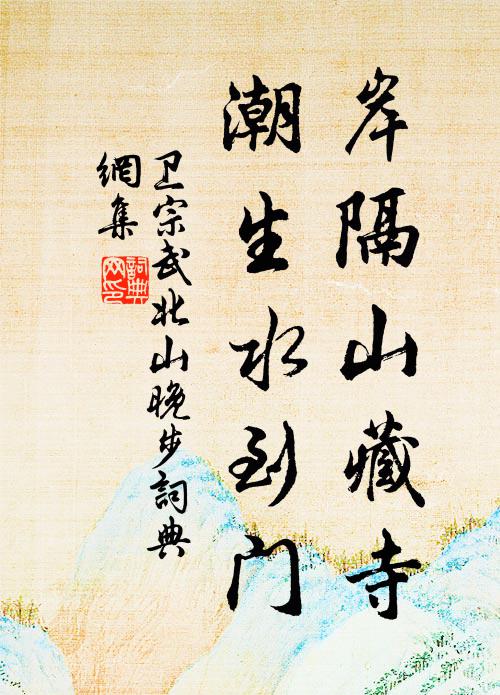 岸隔山藏寺
潮生水到门
卫宗武北山晚步詞典
網集
詞典
网印